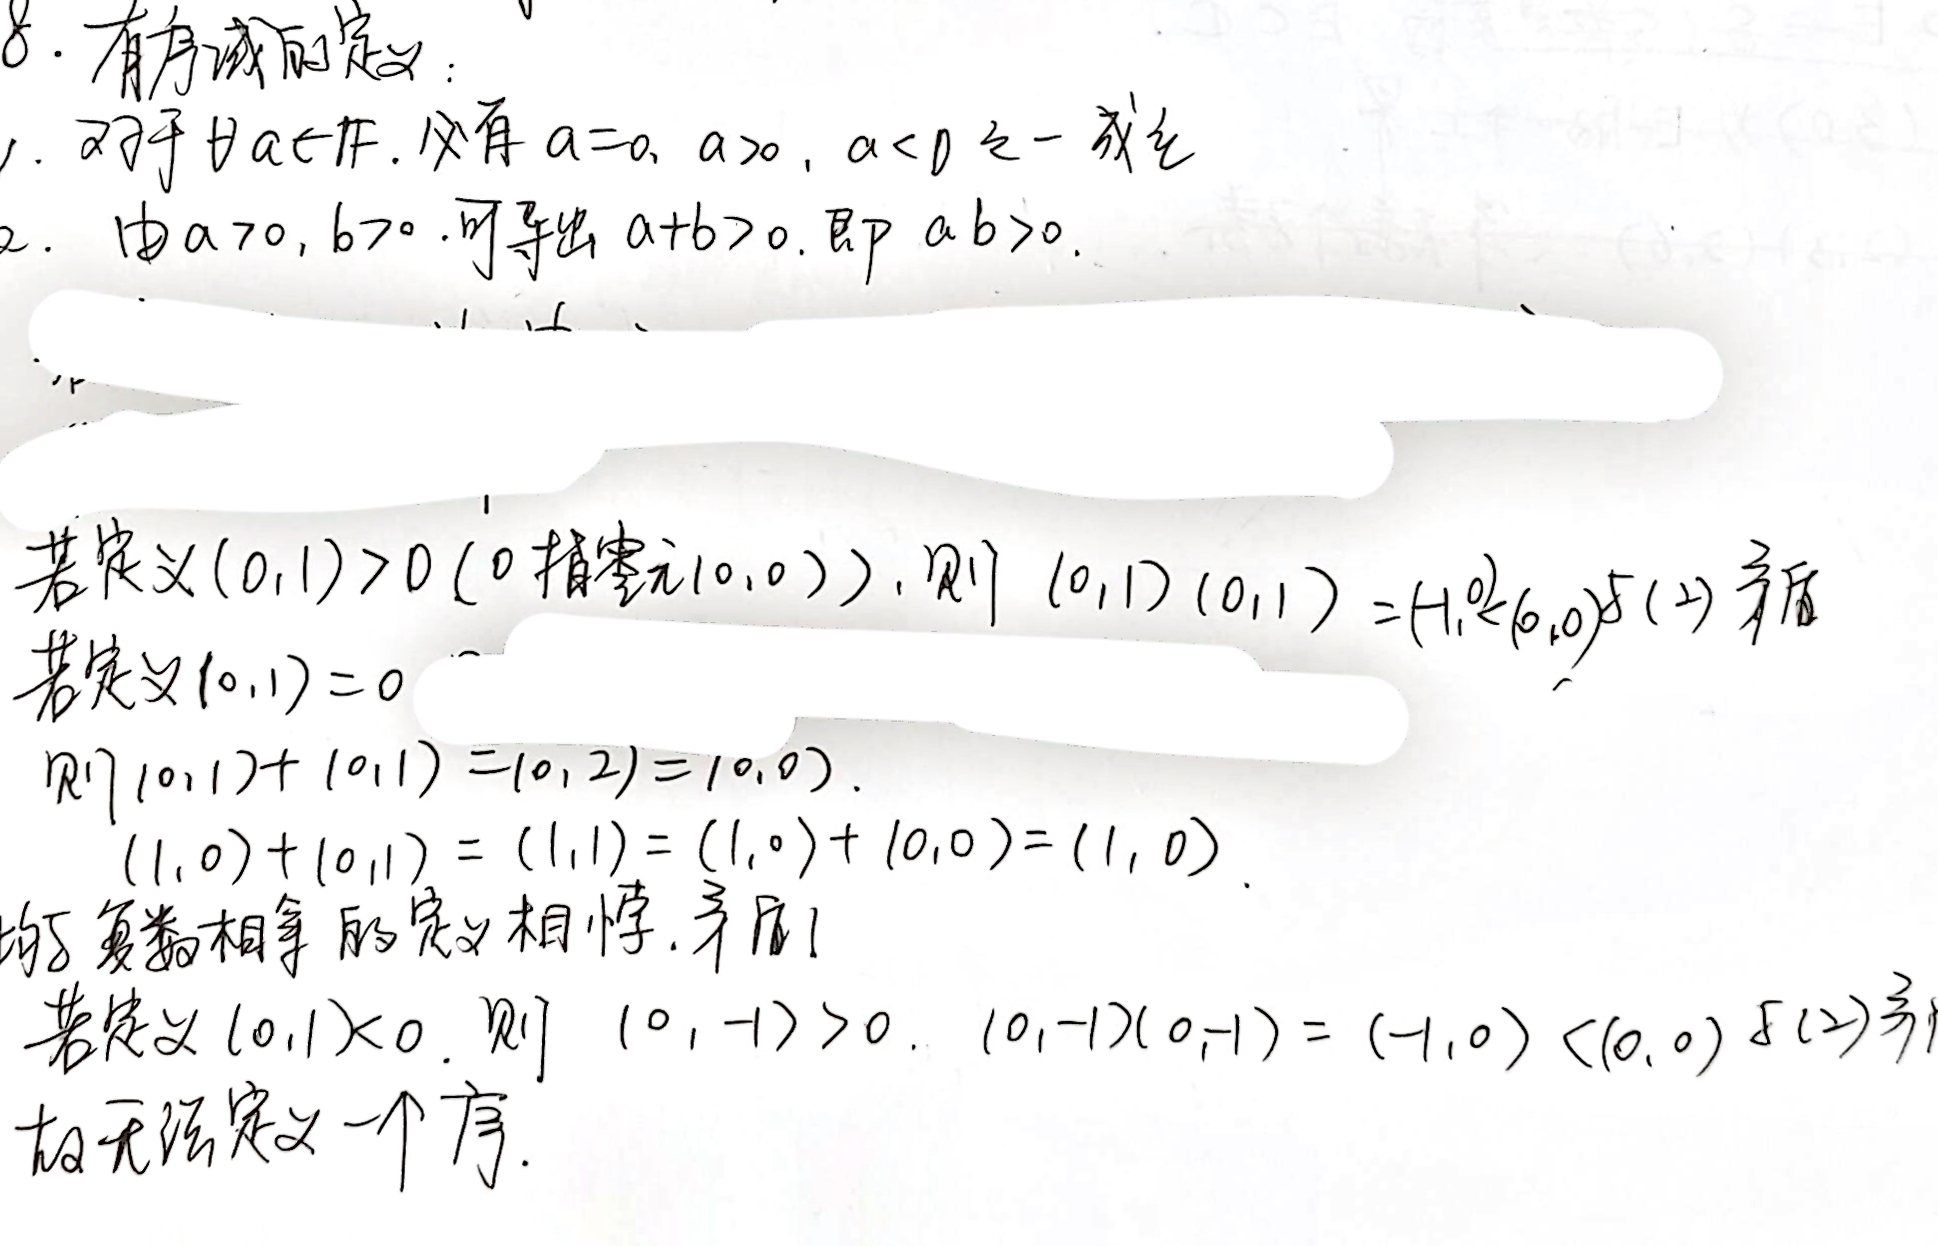 8. 有序域的定义:
1. 对于∀a∈F. 必有 a=0, a>0, a<0 之一成立
2. 由a>0, b>0.可导出 a+b>0. 即 ab>0.
若定义(0,1)>0(0指零元(0,0)), 则 (0,1)(0,1) =(-1,0)<(0,0)与(2)矛盾
若定义(0,1)=0
则(0,1)+(0,1)=(0,2)=(0,0).
(1,0)+(0,1) = (1,1) = (1,0)+(0,0)=(1,0).
均与复数相等的定义相悖.矛盾!
若定义(0,1)<0. 则 (0,-1)>0. (0,-1)(0,-1) = (-1,0) <(0,0) 与(2)矛
故无法定义一个序.